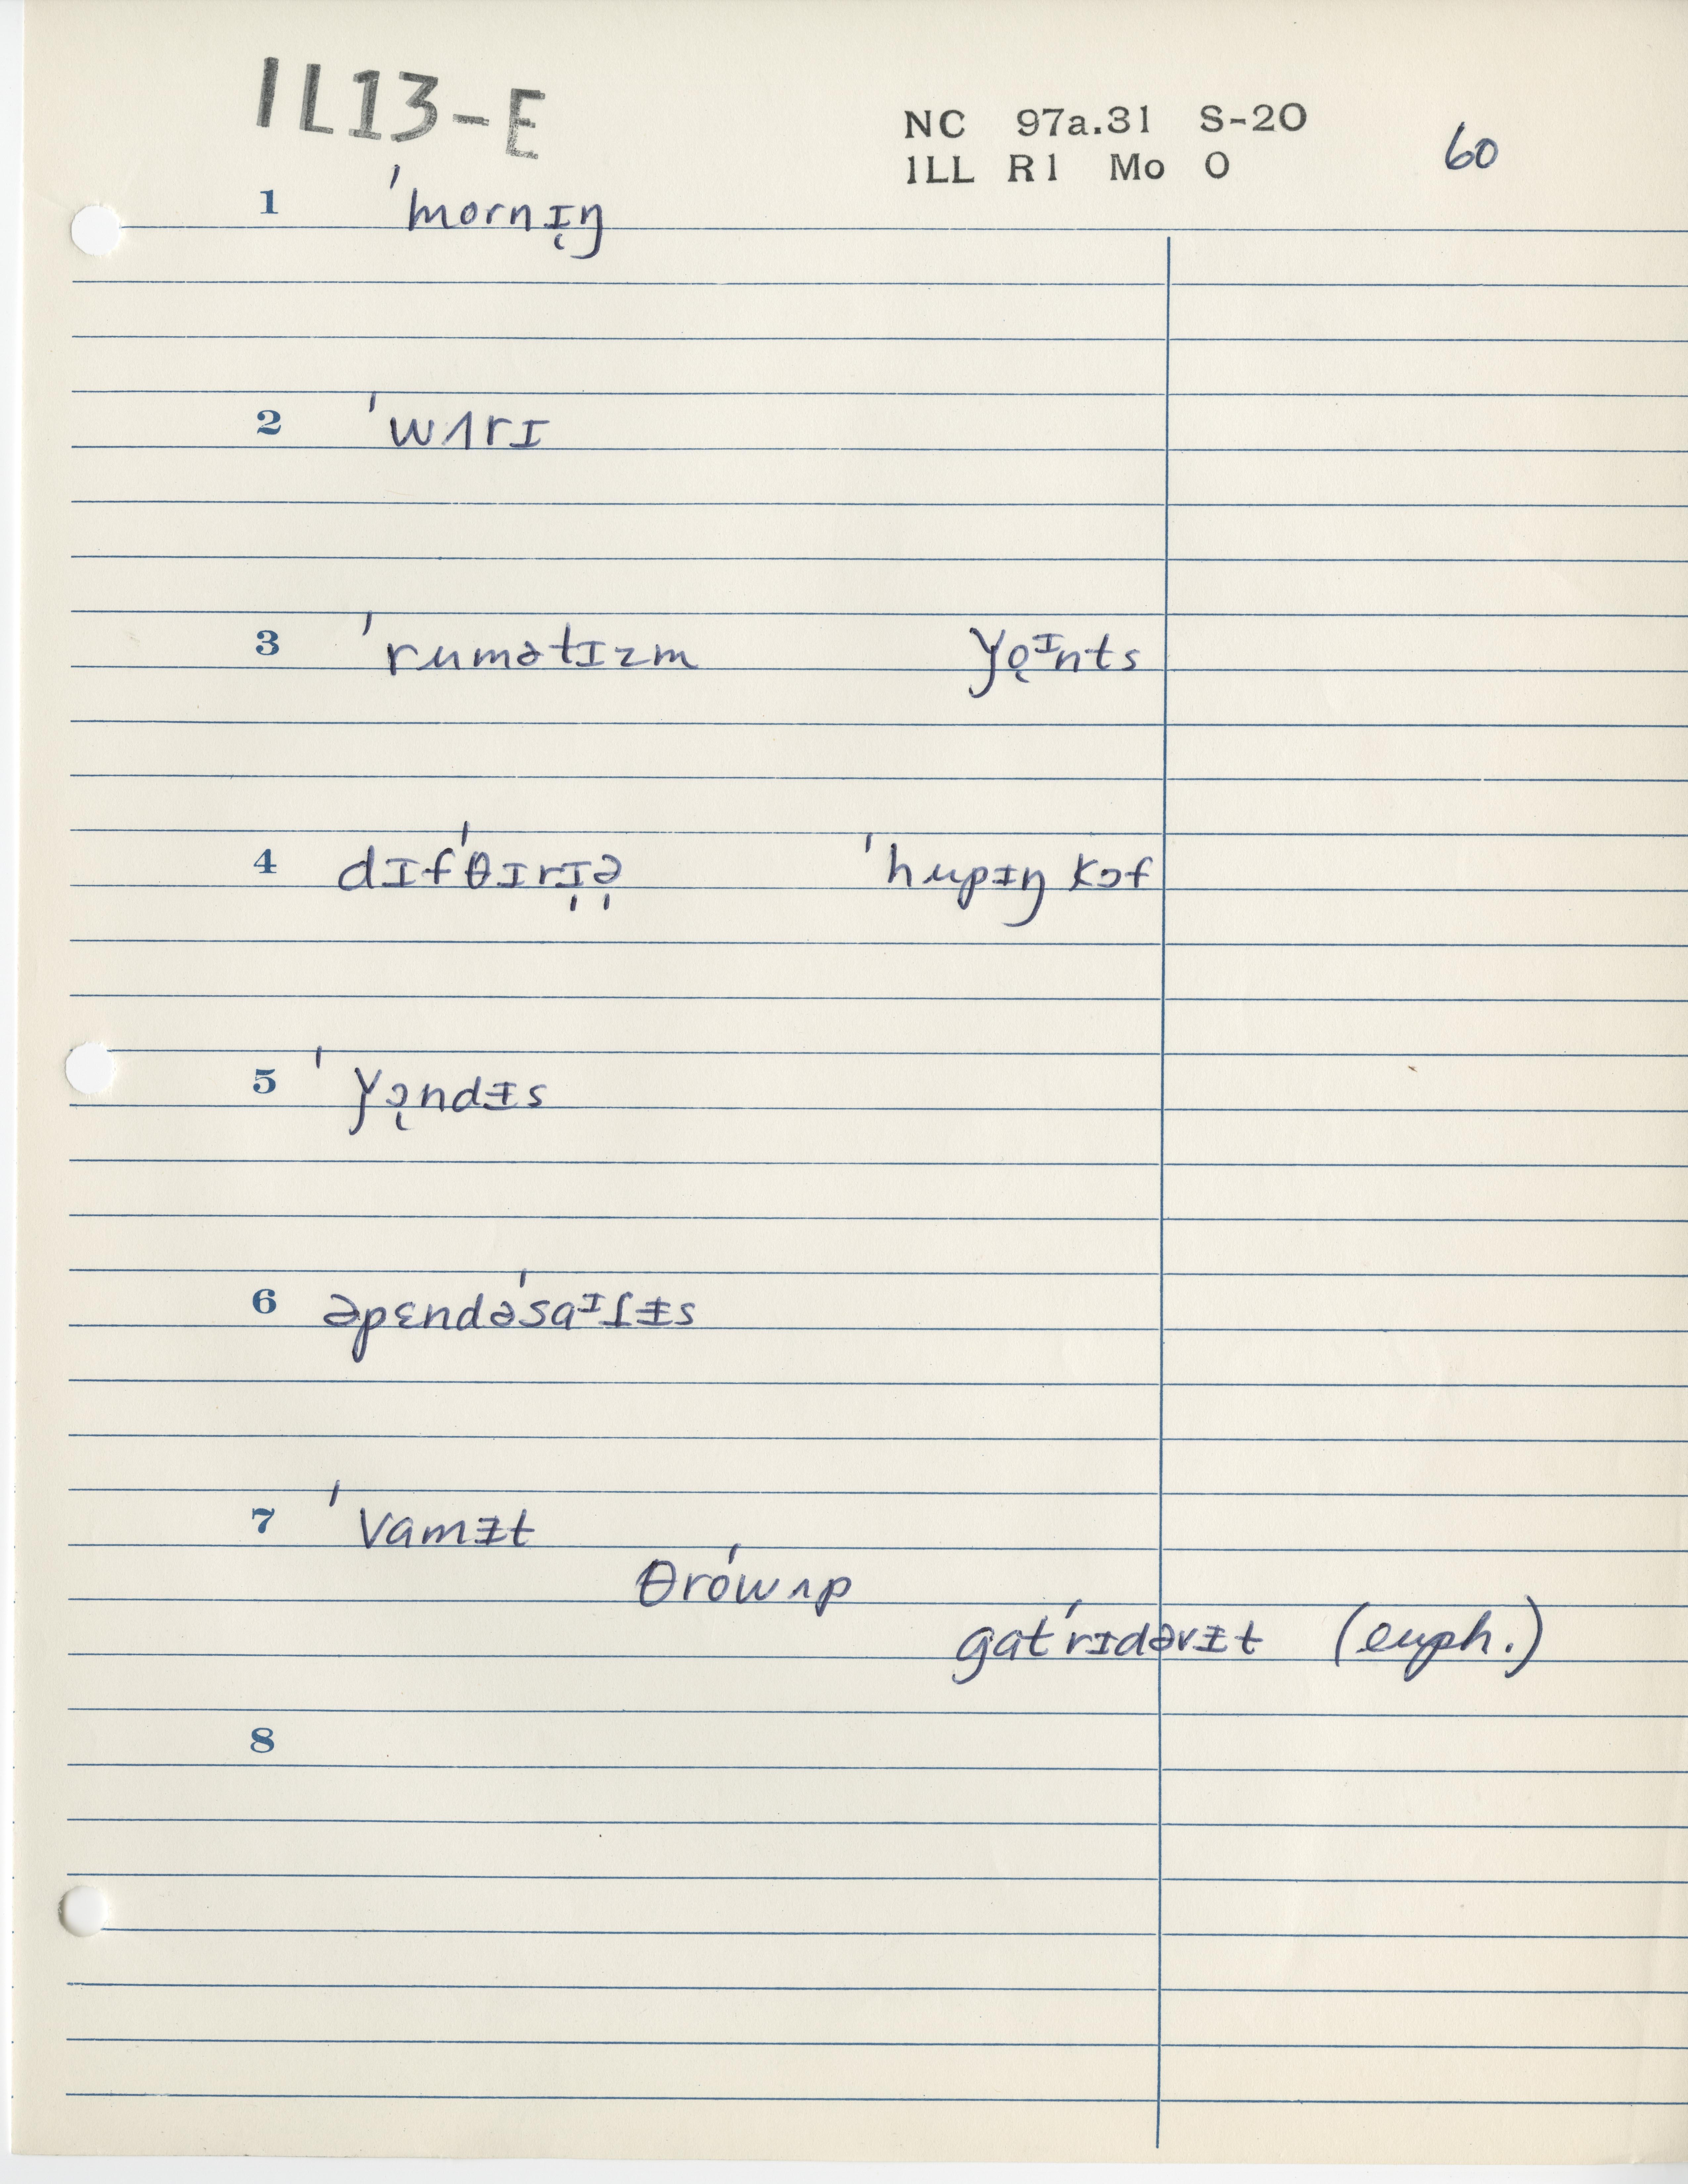 IL13-E
NC 97a.31 S-20
ILL R1 Mo O
60
1 ˈmornɪ̨ŋ
2 ˈwʌrɪ
3 ˈrumətɪzm yo̜ᶦnts
4 dɪfˈθɪrɪ̩ə̩ ˈhupɪŋ kɔf
5 ˈyɔ̨ndᵻs
6 əpɛndəˈsaᶦɾᵻs
7 ˈvamᵻt
θroˈwʌp
gatˈrɪdəvᵻt (euph.)
8